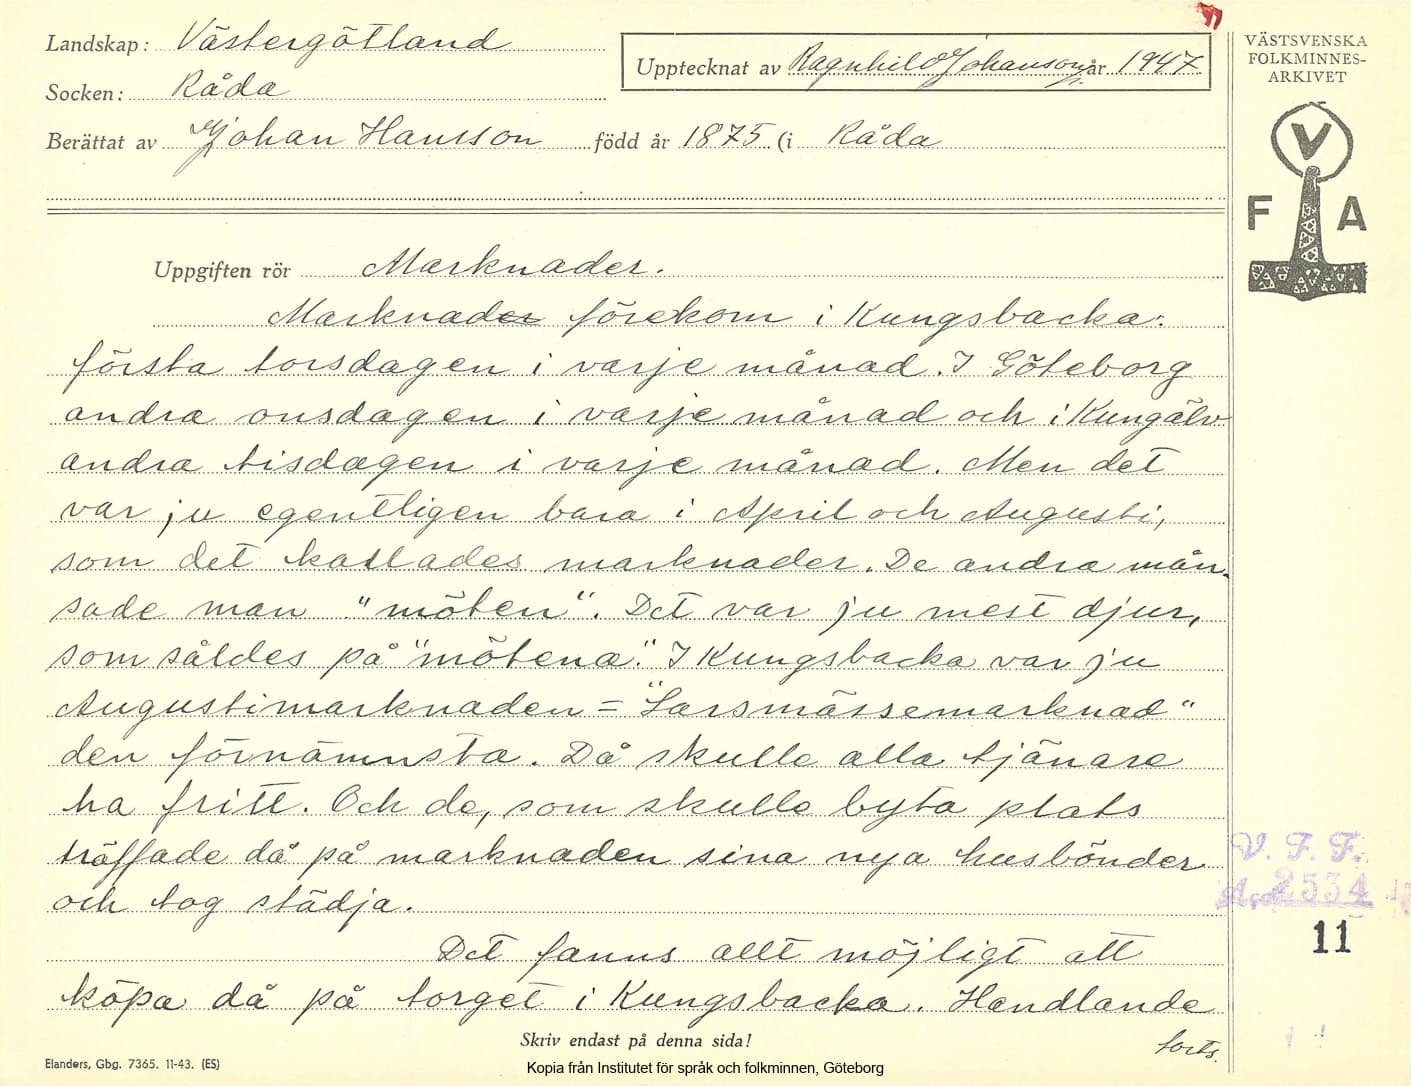 Landskap: Västergötland
Socken: Råda
Upptecknat av Ragnhild Johansson år 1947
Berättat av Johan Hansson född år 1875 (i Råda
VÄSTSVENSKA
FOLKMINNES-
ARKIVET
V
F A
Uppgiften rör Marknader.
Marknader förekom i Kungsbacka:
första torsdagen i varje månad. I Göteborg
andra onsdagen i varje månad och i Kungälv
andra tisdagen i varje månad. Men det
var ju egentligen bara i April och Augusti,
som det kallades marknader. De andra mån.
sade man "möten". Det var ju mest djur,
som såldes på "mötena". I Kungsbacka var ju
Augustimarknaden = "Larsmässemarknad"
den förnämnsta. Då skulle alla tjänare
ha fritt. Och de, som skulle byta plats
träffade då på marknaden sina nya husbönder
och tog städja.
Det fanns allt möjligt att
köpa då på torget i Kungsbacka. Handlande
forts.
V. F. F.
2534
11
Skriv endast på denna sida!
Elanders, Gbg. 7365. 11-43. (ES)
Kopia från Institutet för språk och folkminnen, Göteborg